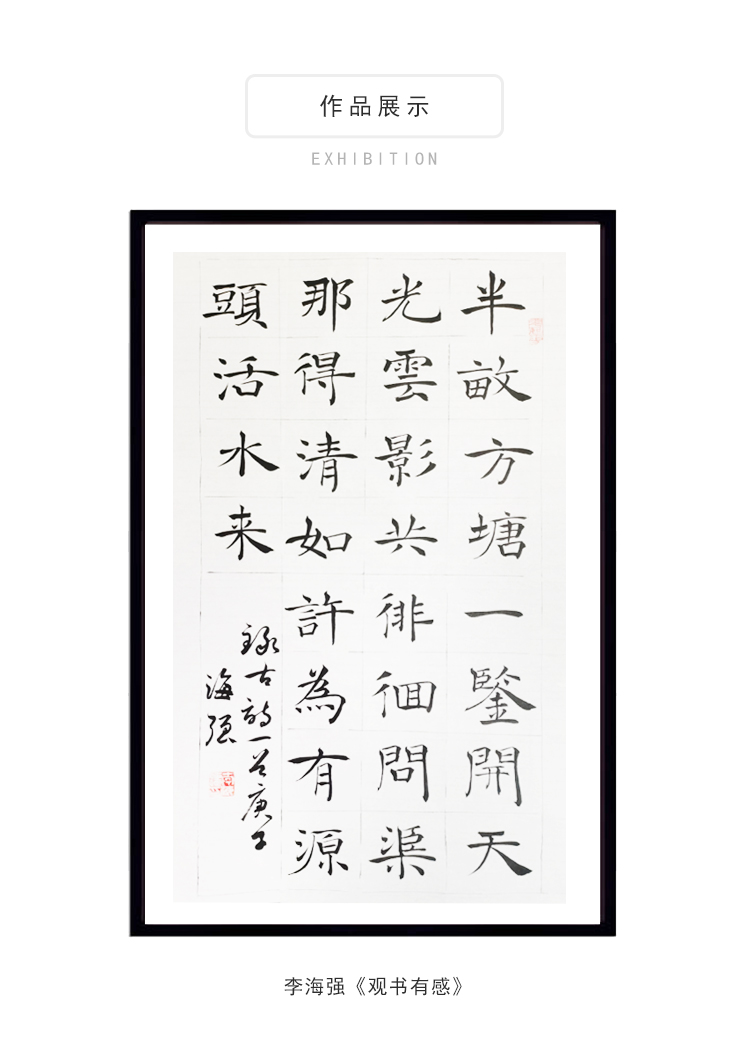 作品展示
EXHIBITION
半畝方塘一鑒開天
光雲影共徘徊問渠
那得清如許為有源
頭活水来
録古詩一首庚子
海强
李海强《观书有感》